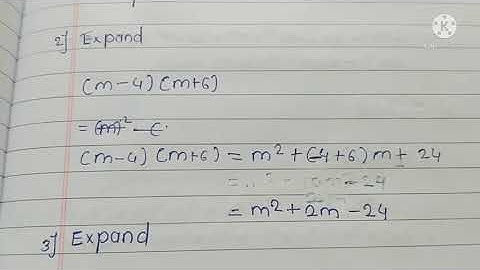 2] Expand
(m-4)(m+6)
(m-4) (m+6) = m² + (-4+6)m ± 24
= m² + 2m - 24
3] Expand